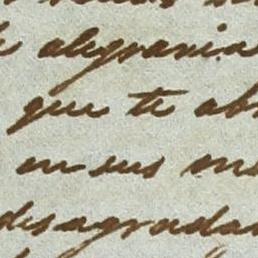 alegraria
que te ab
en sus me
desagrada